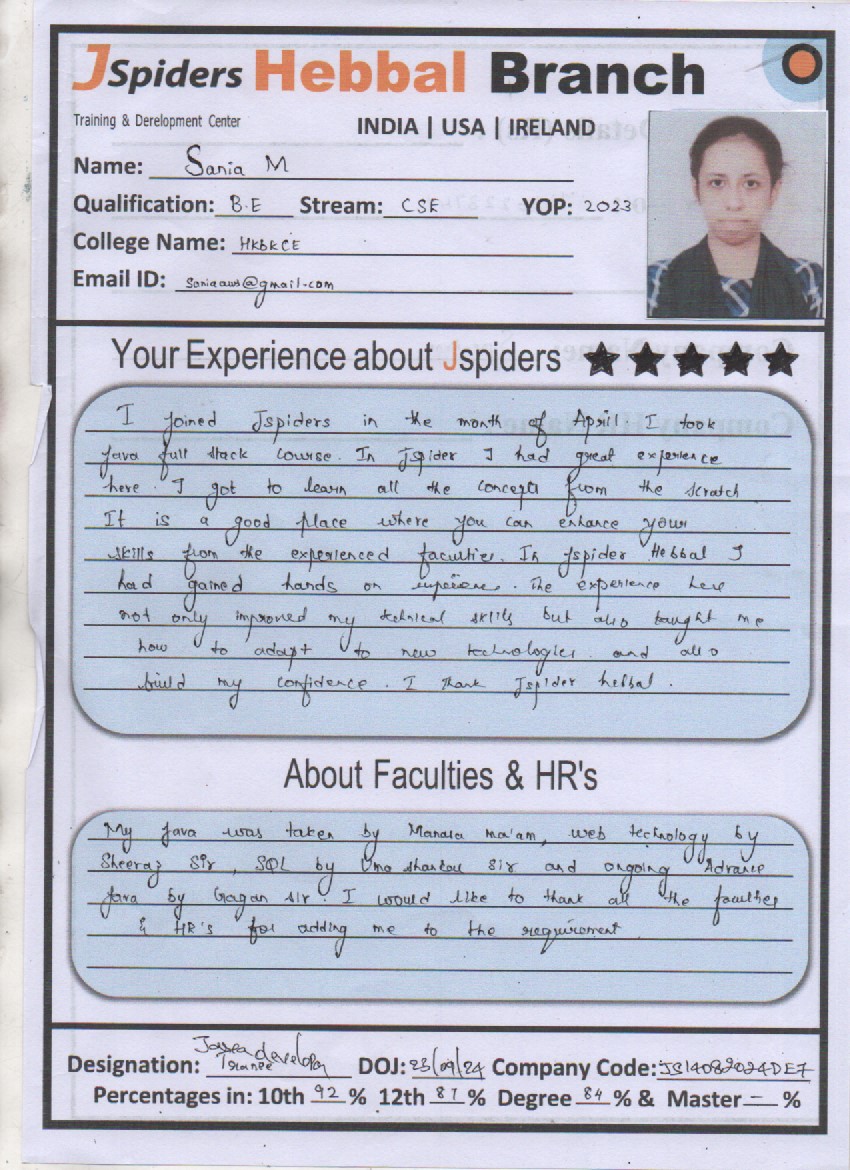 JSpiders Hebbal Branch
Training & Derelopment Center
INDIA | USA | IRELAND
Name: Sania M
Qualification: B.E Stream: CSE YOP: 2023
College Name: HKBKCE
Email ID: @gmail.com
Your Experience about Jspiders
I joined Jspiders in the month of April I took
java full stack course. In Jspider I had great experience
here. I got to learn all the concept from the scratch
It is a good place where you can enhance your
skills from the experienced faculties. In Jspider Hebbal I
had gained hands on experience. The experience here
not only improved my technical skills but also taught me
how to adapt to new technologies. and also
build my confidence. I thank Jspider hebbal.
About Faculties & HR's
My java was taken by Manasa ma'am, web technology by
Sheeraz Sir, SQL by Uma shankar Sir and ongoing Advance
Java by Gagan sir. I would like to thank all the faculties
& HR's for adding me to the requirement
Designation: Java developer Trainee DOJ: 23/09/24 Company Code:
Percentages in: 10th 92 % 12th 87 % Degree 84 % & Master - %